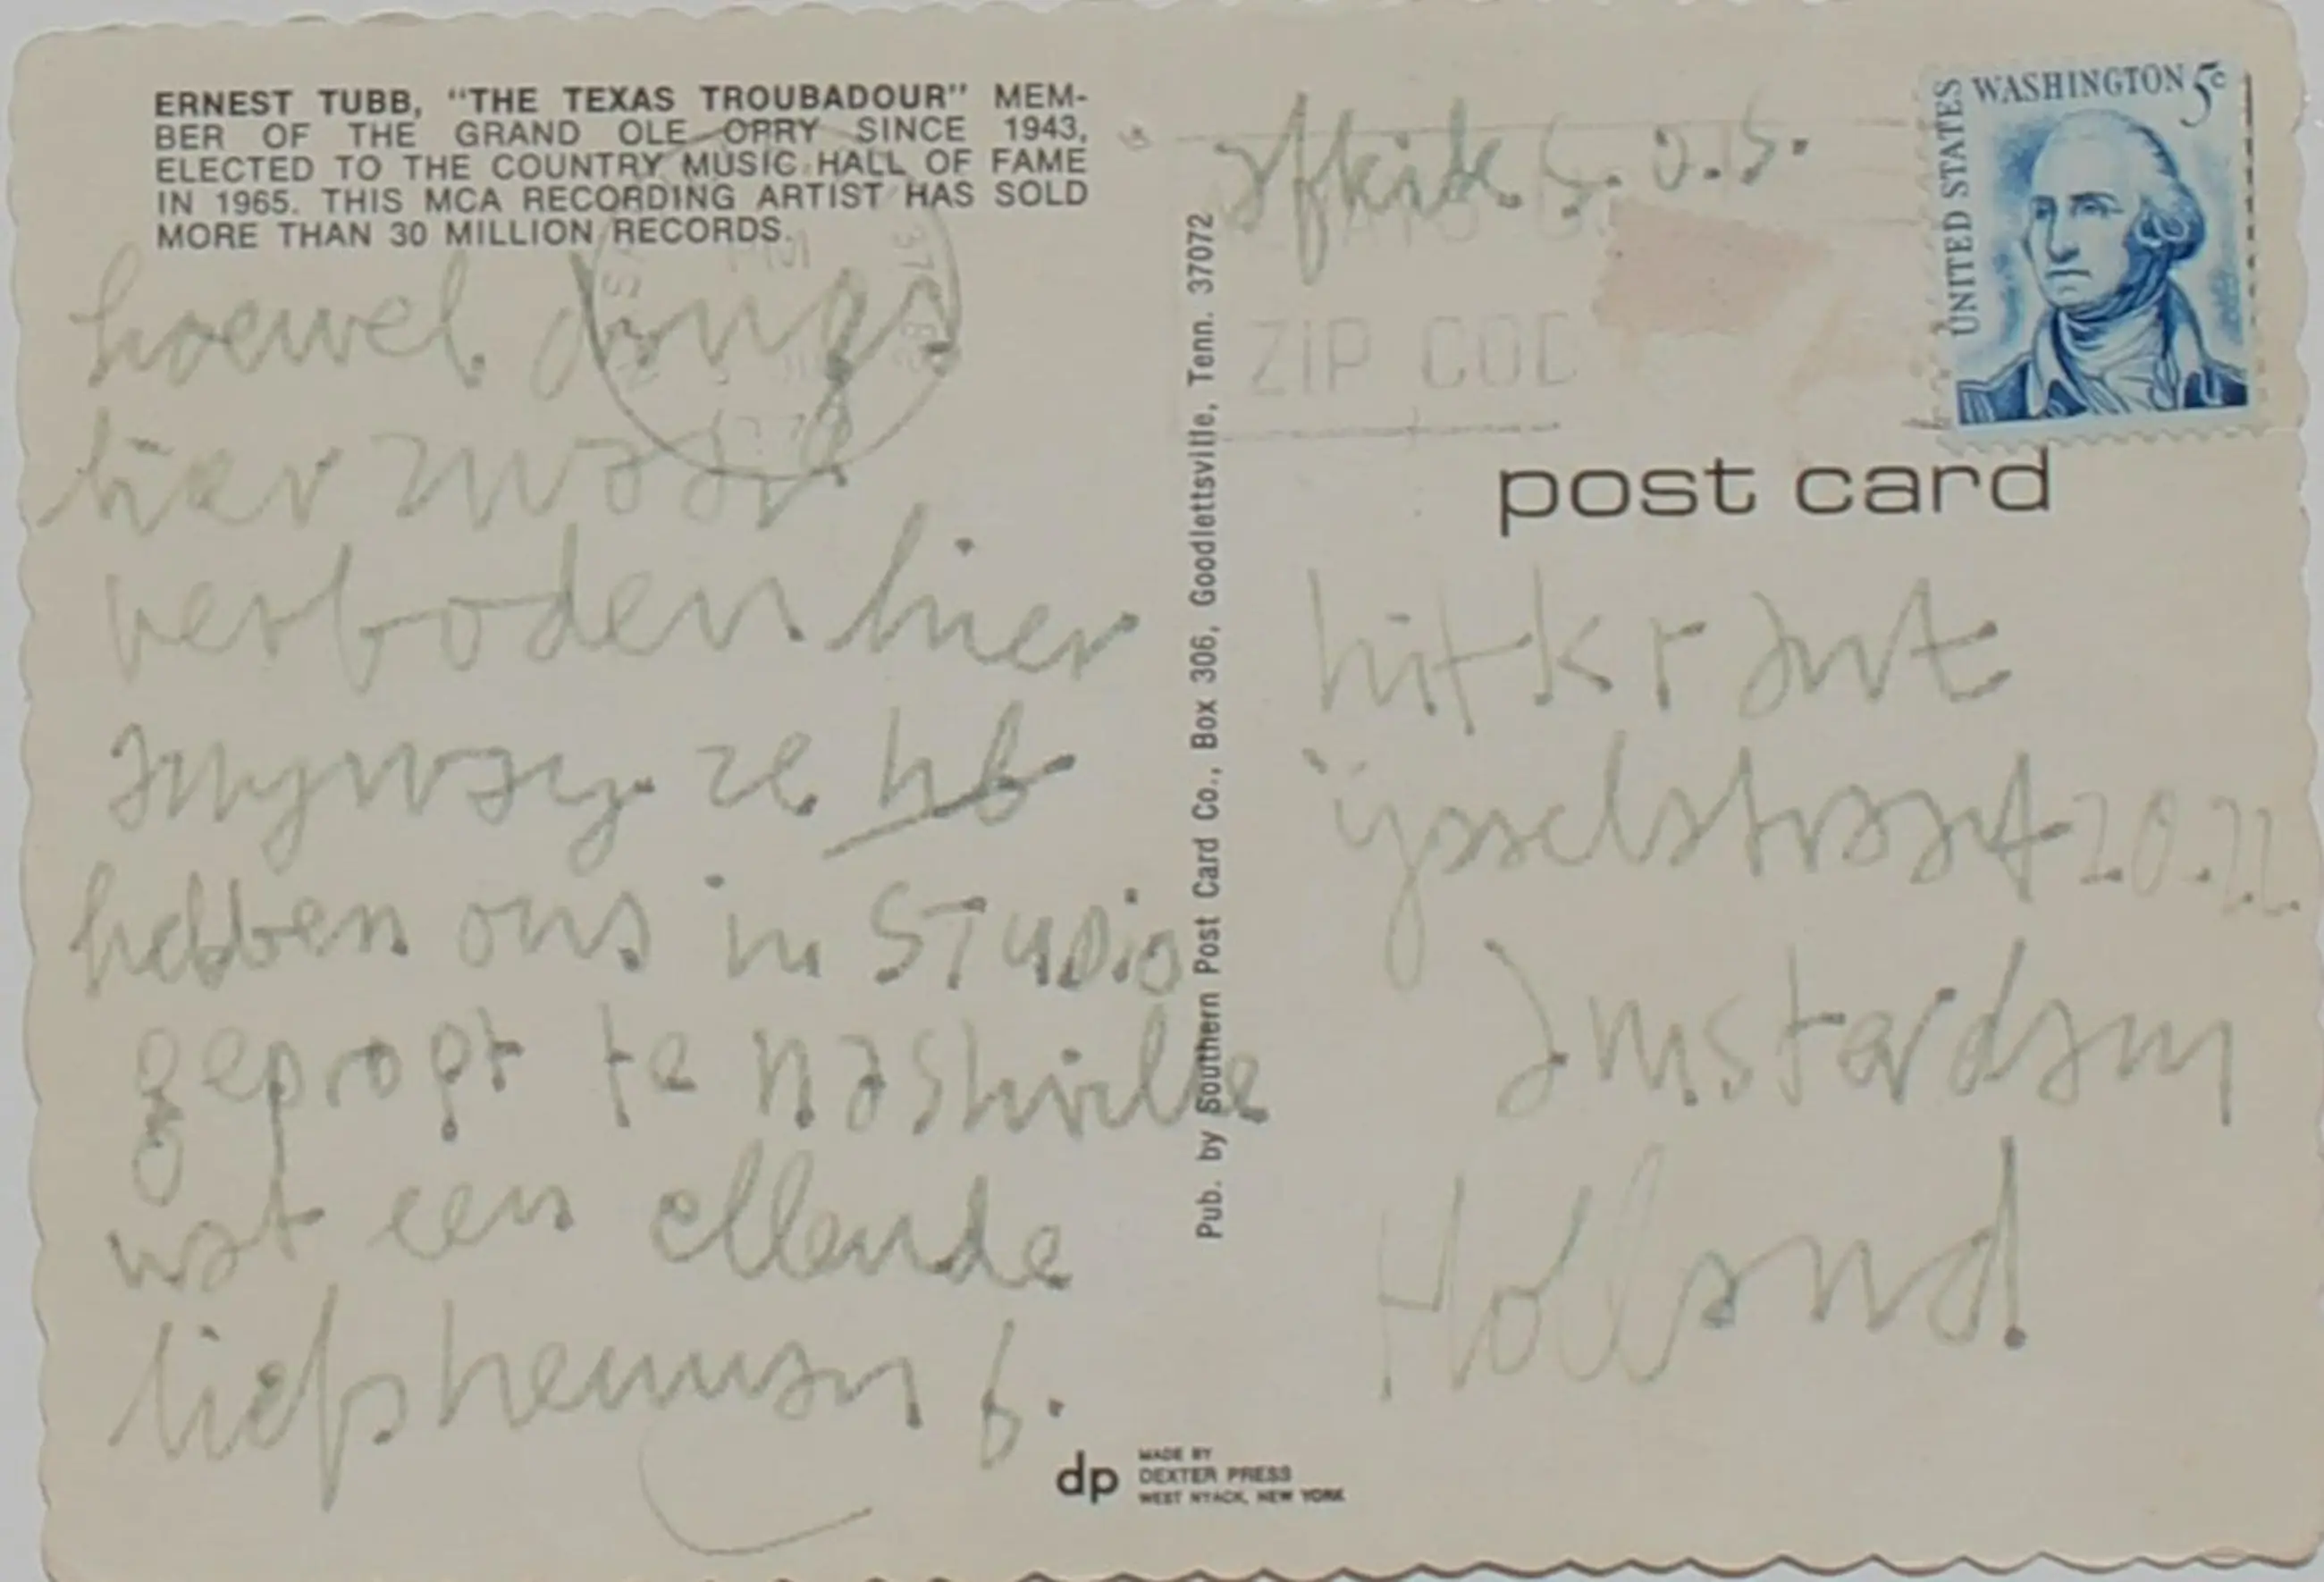 ERNEST TUBB, "THE TEXAS TROUBADOUR" MEM-
BER OF THE GRAND OLE OPRY SINCE 1943,
ELECTED TO THE COUNTRY MUSIC HALL OF FAME
IN 1965. THIS MCA RECORDING ARTIST HAS SOLD
MORE THAN 30 MILLION RECORDS.
hoewel drugs
hier zwaar
verboden hier
anyway ze hb
hebben ons in STUDIO
gepropt te nashville
wat een ellende
liefs herman b.
Pub. by Southern Post Card Co., Box 306, Goodlettsville, Tenn. 37072
dp
MADE BY
DEXTER PRESS
WEST NYACK, NEW YORK
afkik S.O.S.
ZIP COD
UNITED STATES
WASHINGTON 5c
post card
hitkrant
ijsselstraat 20.22
amsterdam
Holland